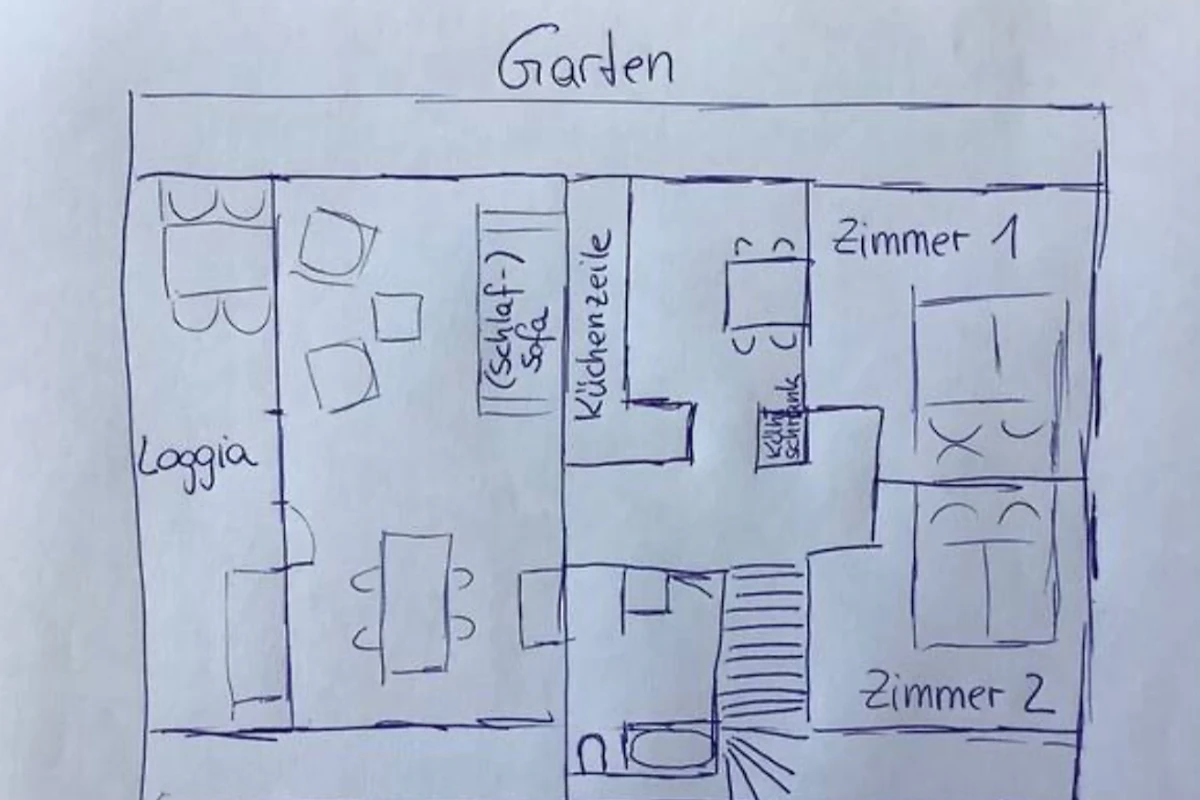 Garten
Zimmer 1
(Schlaf-)
Sofa
Küchenzeile
Kühl
schrank
Loggia
Zimmer 2